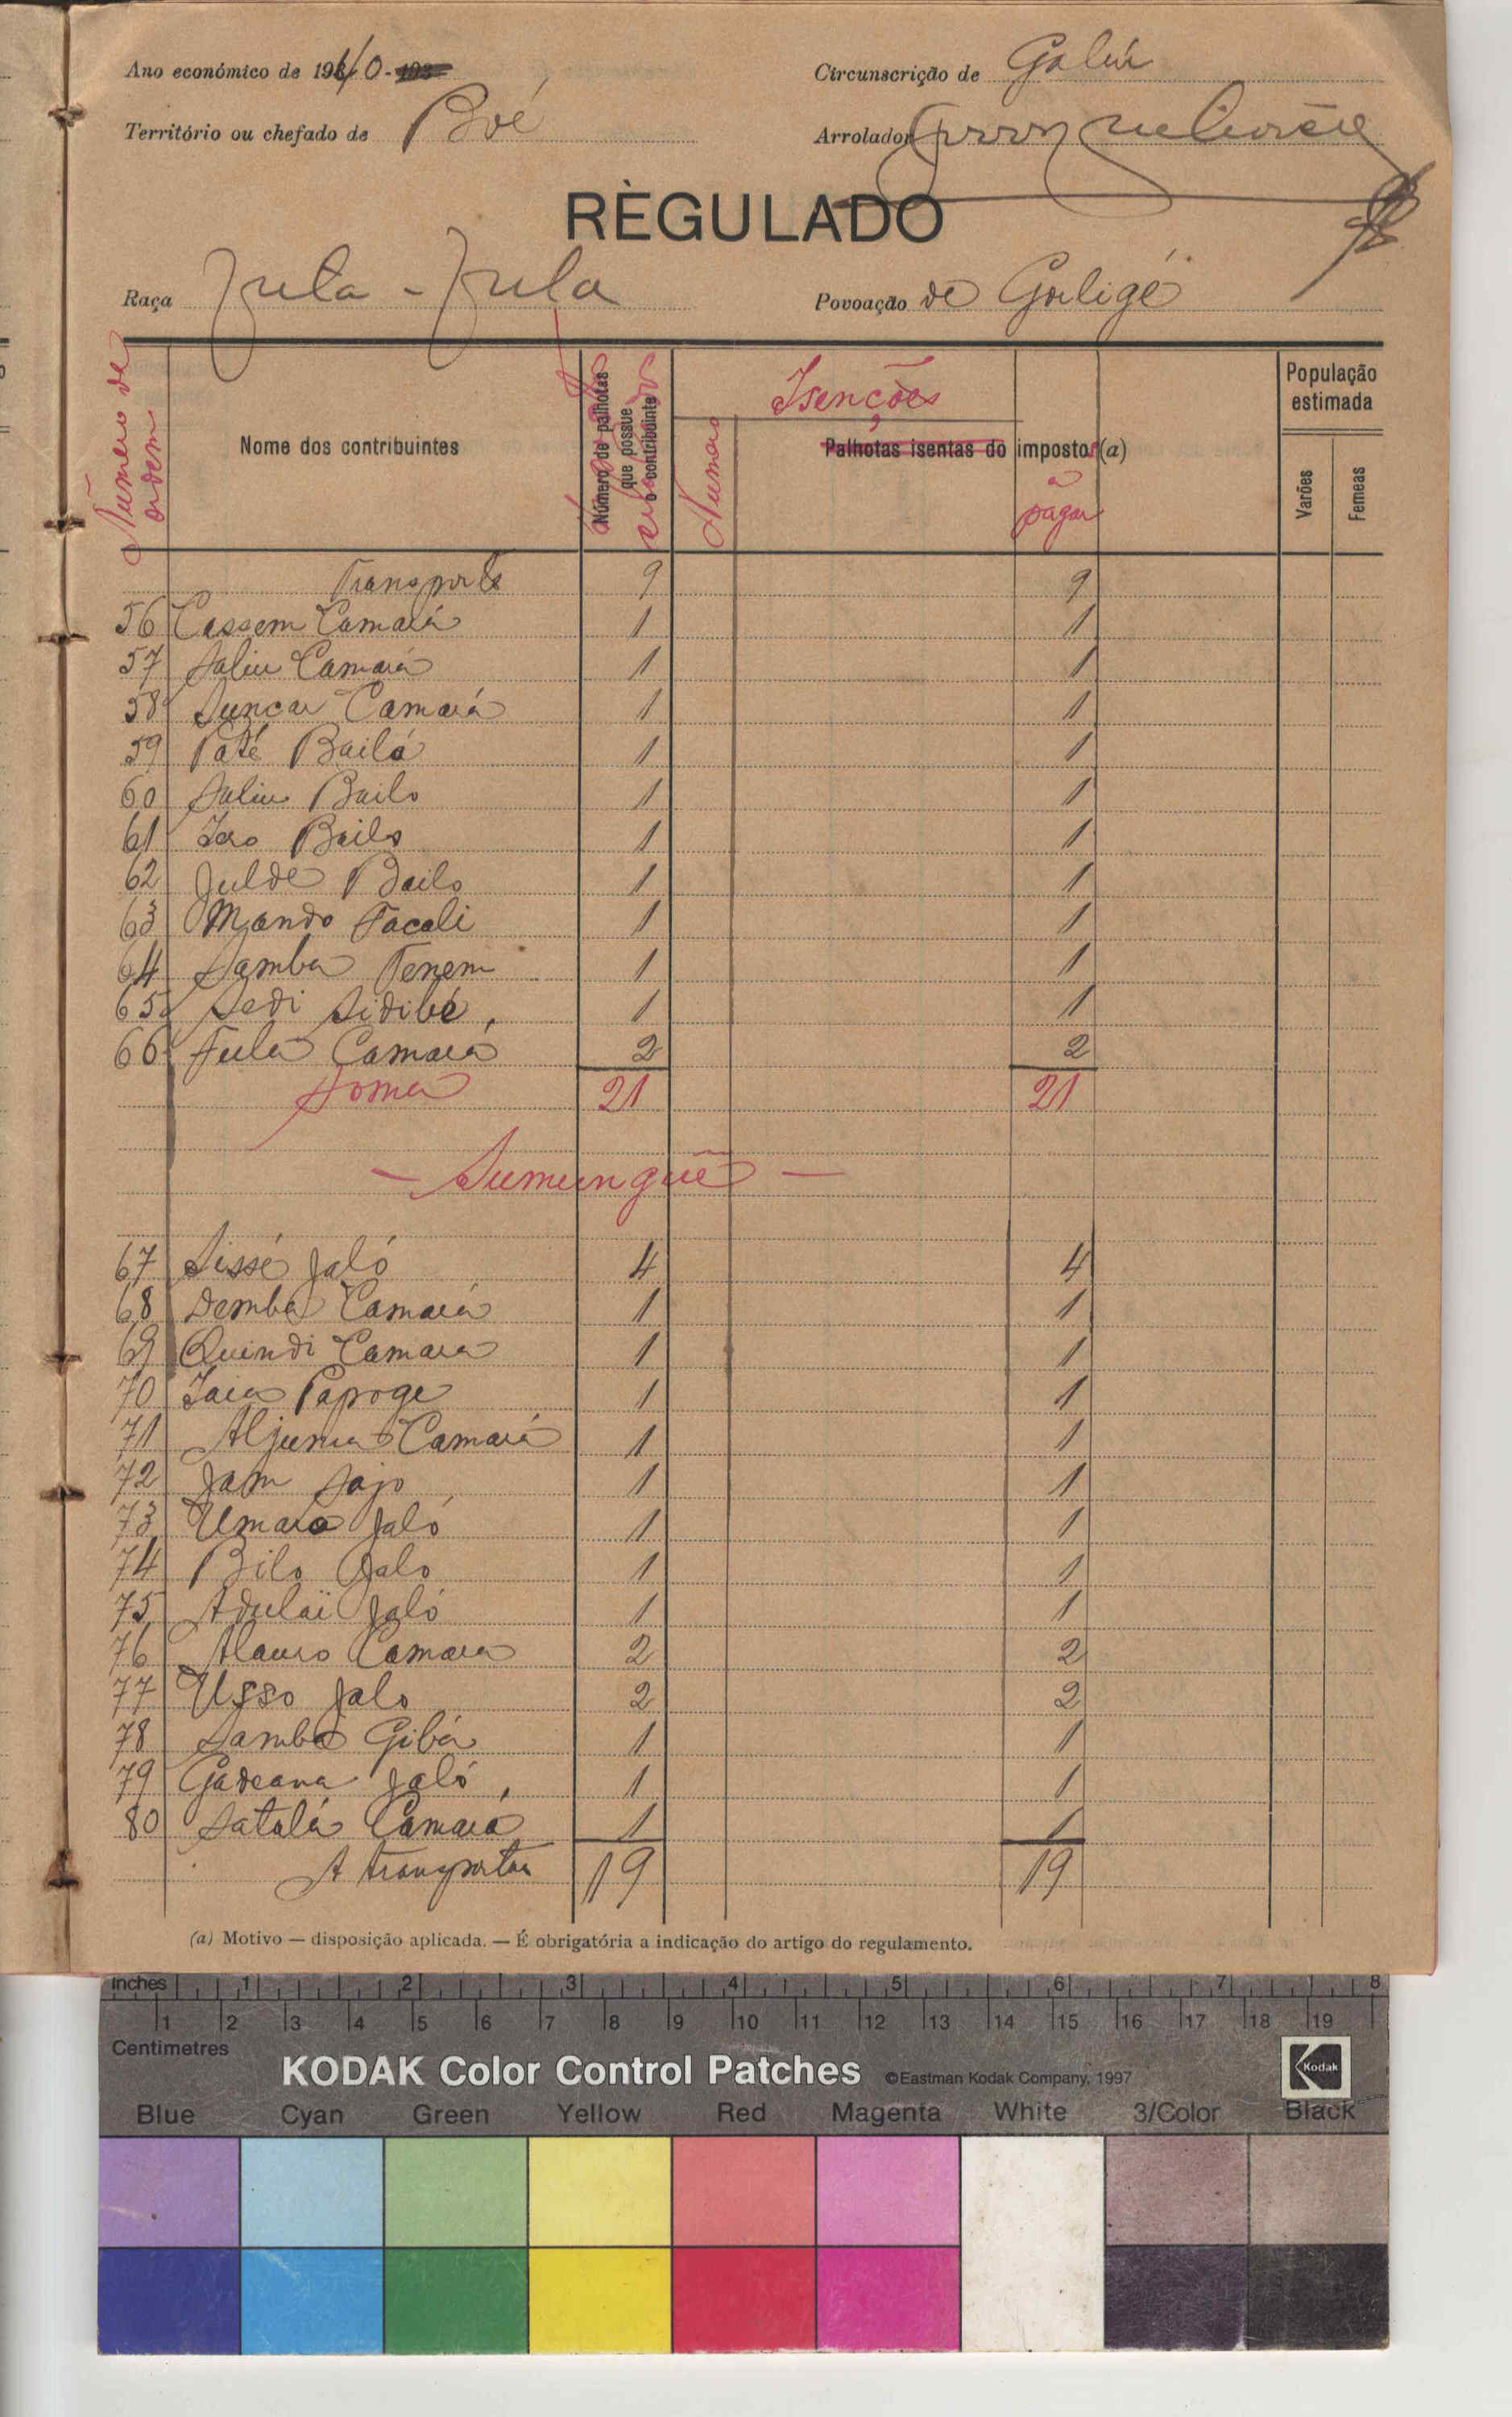 Ano económico de 1940 - 193
Circunscrição de Gabú
Território ou chefado de Boé
Arrolador
RÈGULADO
Raça Futa - Fula
Povoação de Goligé
Número de ordem
Nome dos contribuintes
Número de palhotas que possue o contribuinte
Isenções
Numero
Palhotas isentas do impostos (a)
a pagar
População estimada
Varões
Femeas
Transporte 9 9
56 Cassem Camará 1 1
57 Saliu Camará 1 1
58 Suncar Camará 1 1
59 Paté Bailó 1 1
60 Saliu Bailo 1 1
61 Iero Bailo 1 1
62 Julde Bailo 1 1
63 Mando Sacali 1 1
64 Samba Tenem 1 1
65 Sedi Sidibé 1 1
66 Fula Camará 2 2
Soma 21 21
— Sumunguê —
67 Sissé Jaló 4 4
68 Demba Camará 1 1
69 Quindi Camara 1 1
70 Iaia Paproge 1 1
71 Aljuma Camará 1 1
72 Jam Sajo 1 1
73 Umaro Jaló 1 1
74 Bilo Jalo 1 1
75 Adulai Jaló 1 1
76 Alauro Camara 2 2
77 Usso Jalo 2 2
78 Samba Gibá 1 1
79 Gadeana Jaló 1 1
80 Satalá Camará 1 1
A transportar 19 19
(a) Motivo — disposição aplicada. — É obrigatória a indicação do artigo do regulamento.
inches 1 2 3 4 5 6 7 8
1 2 3 4 5 6 7 8 9 10 11 12 13 14 15 16 17 18 19
Centimetres
KODAK Color Control Patches ©Eastman Kodak Company, 1997 Kodak
Blue Cyan Green Yellow Red Magenta White 3/Color Black